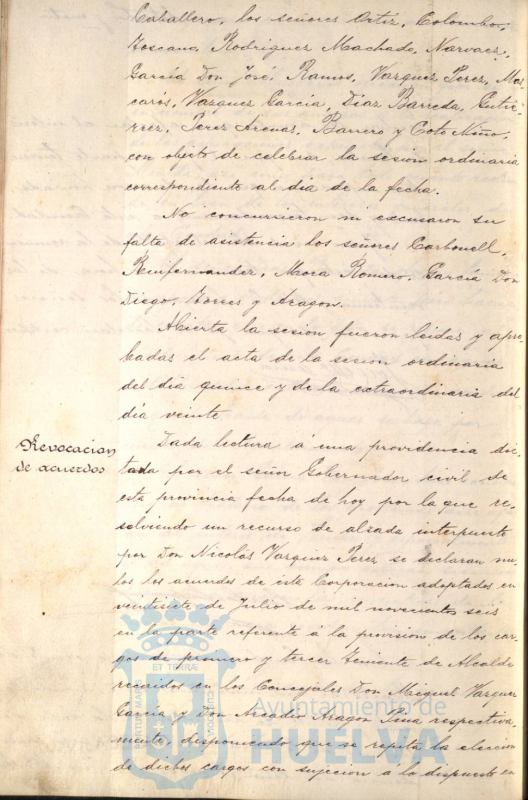 Caballero, los señores Ortiz, Colombo,
Toscano, Rodriguez Machado, Narvaez,
García Don José, Ramos, Vazquez Perez, Mas-
carós, Vazquez García, Diaz Barreda, Gutie-
rrez, Perez Arenas, Barrero y Coto Niño,
con objeto de celebrar la sesion ordinaria
correspondiente al dia de la fecha.
No concurrieron ni excusaron su
falta de asistencia los señores Carbonell,
Mora Romero, García Don
Diego, Torres y Aragon.
Abierta la sesion fueron leidas y apro-
badas el acta de la sesion ordinaria
del dia quince y de la extraordinaria del
dia veinte
Revocacion
de acuerdos
Dada lectura á una providencia dic-
tada por el señor Gobernador civil de
esta provincia fecha de hoy por la que re-
solviendo un recurso de alzada interpuesto
por Don Nicolás Vazquez Perez, se declaran nu-
los los acuerdos de esta Corporacion adoptados en
veintisiete de Julio de mil novecientos seis
en la parte referente á la provision de los car-
gos de primero y tercer Teniente de Alcalde
recaidos en los Concejales Don Miguel Vazquez
García y Don Arcadio Aragon Pina respectiva-
mente, disponiendo que se repita la eleccion
de dichos cargos con sujecion á lo dispuesto en
Ayuntamiento de
HUELVA
ET TERRÆ
CUSTODIA
PORTUS MARIS